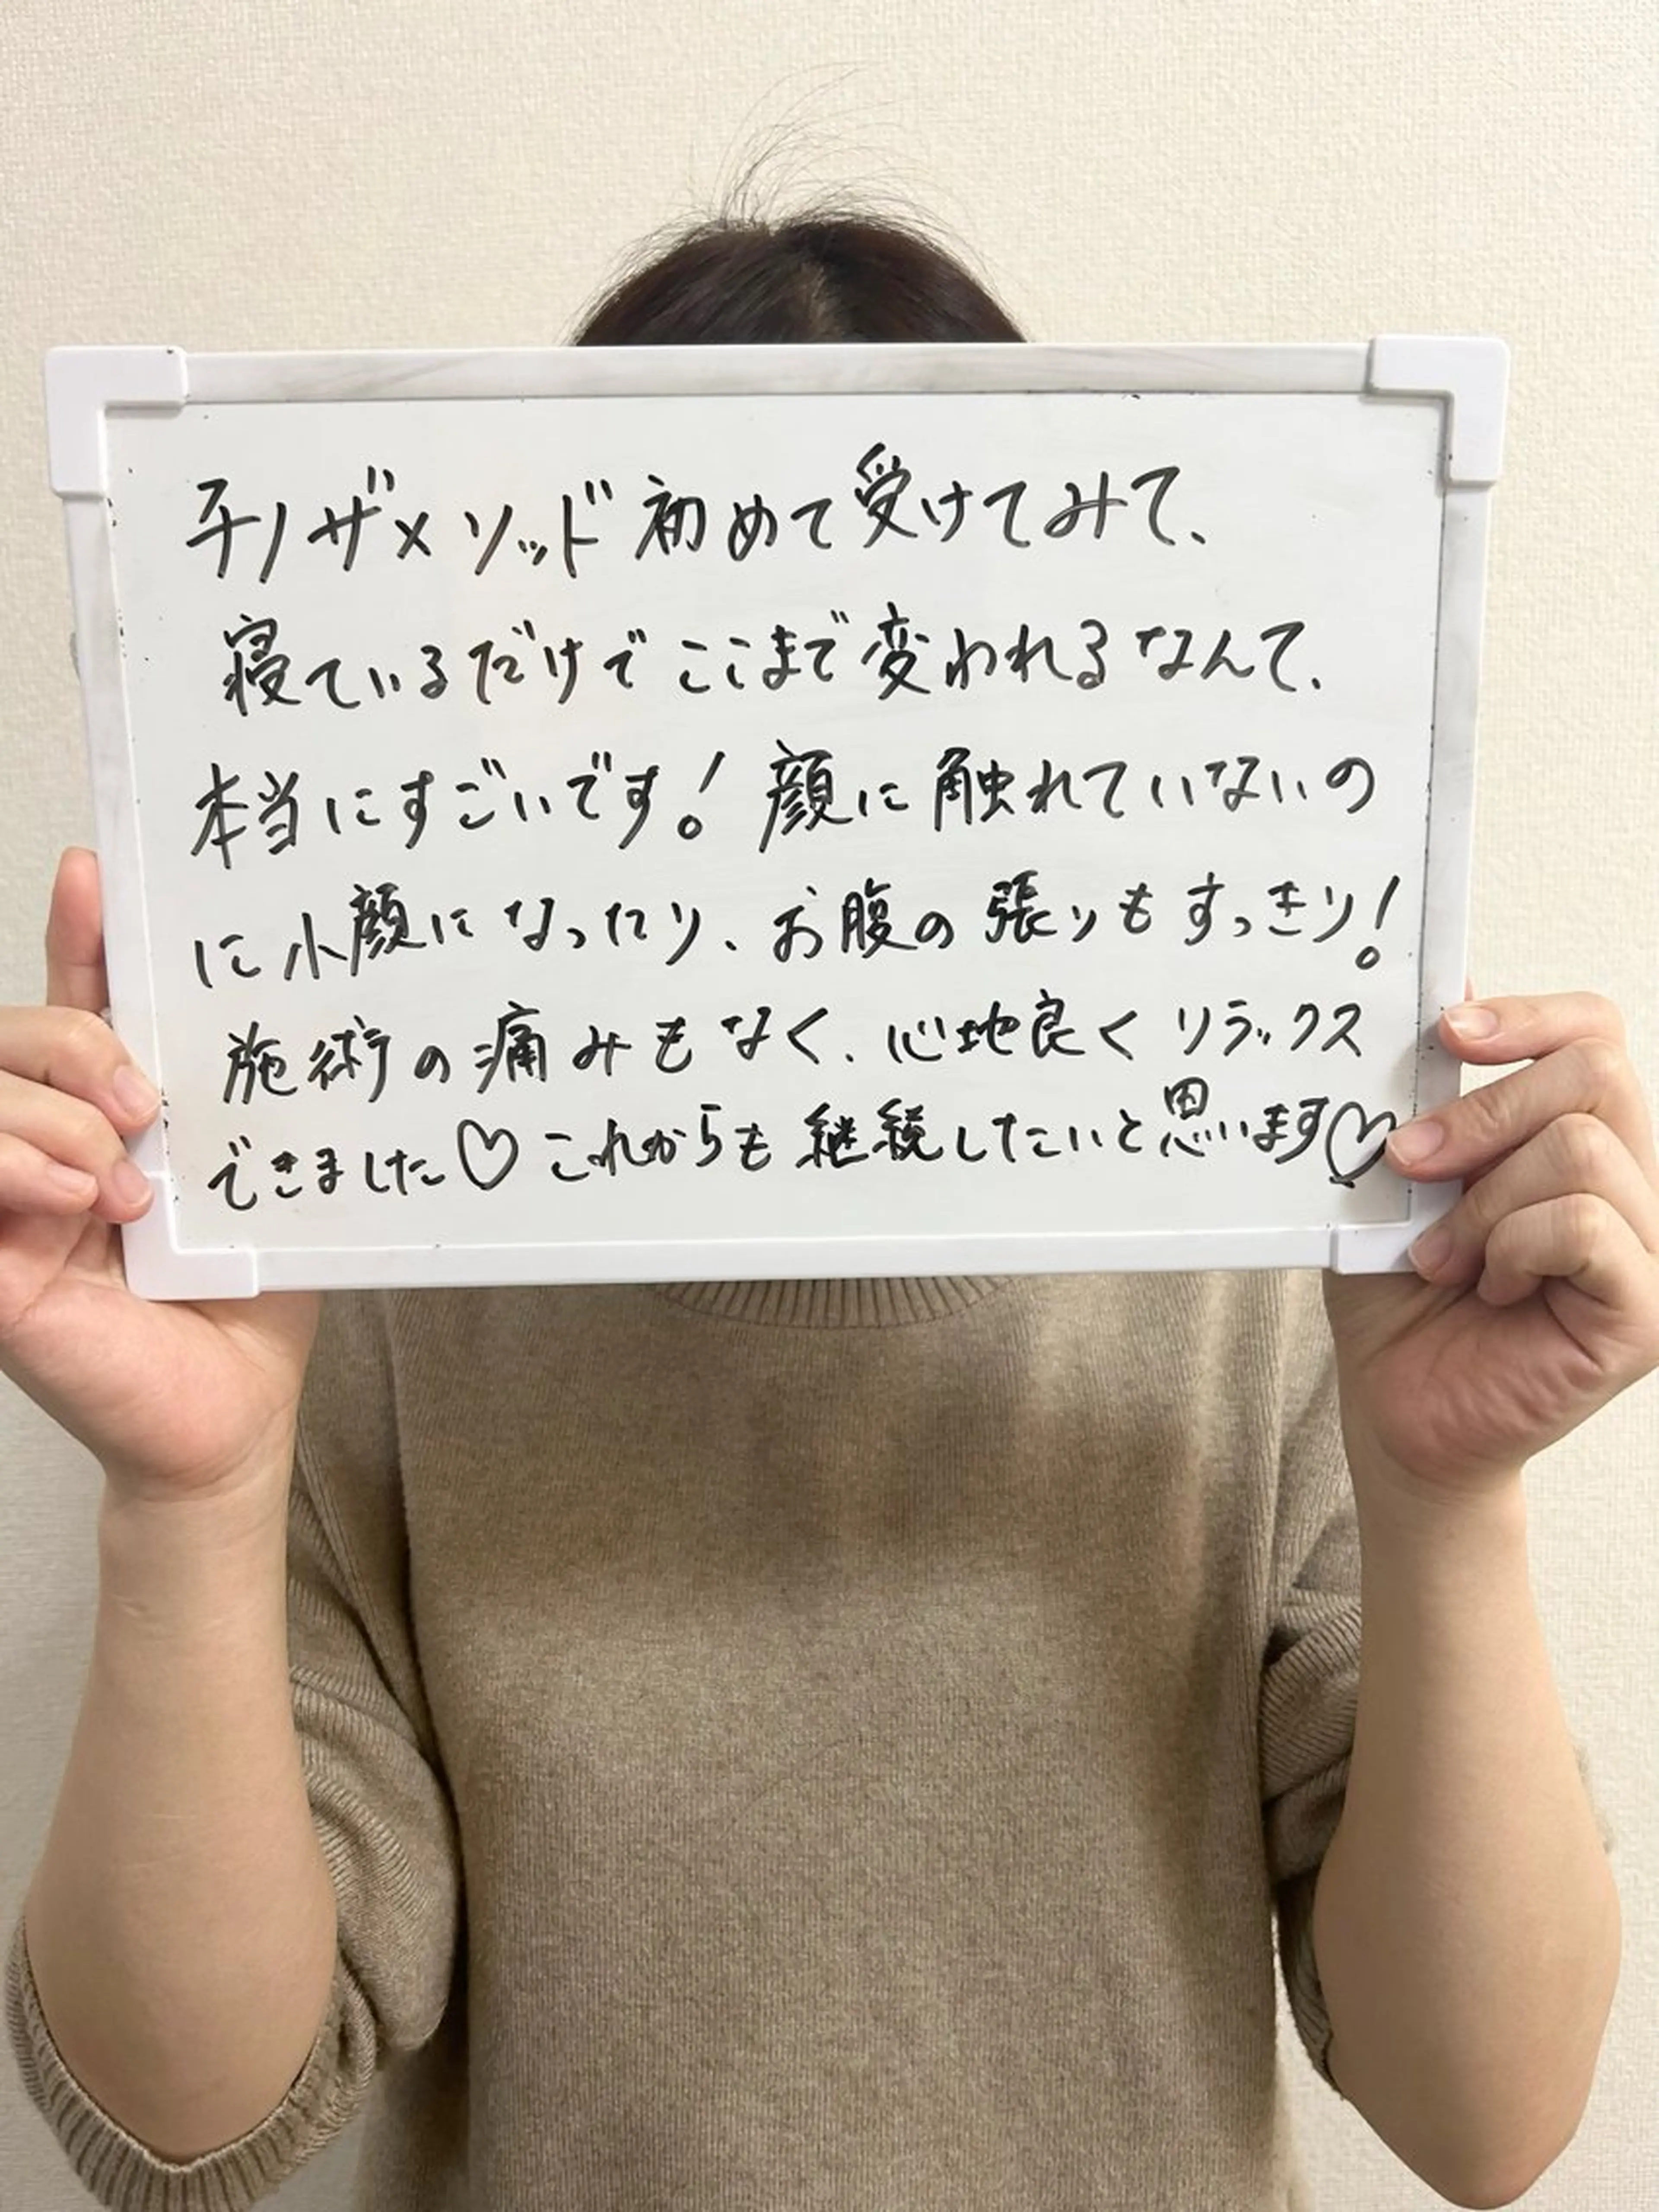 チノザメソッド初めて受けてみて、
寝ているだけでここまで変われるなんて、
本当にすごいです!顔に触れていないの
に小顔になったり、お腹の張りもすっきり!
施術の痛みもなく、心地良くリラックス
できました♡これからも継続したいと思います♡